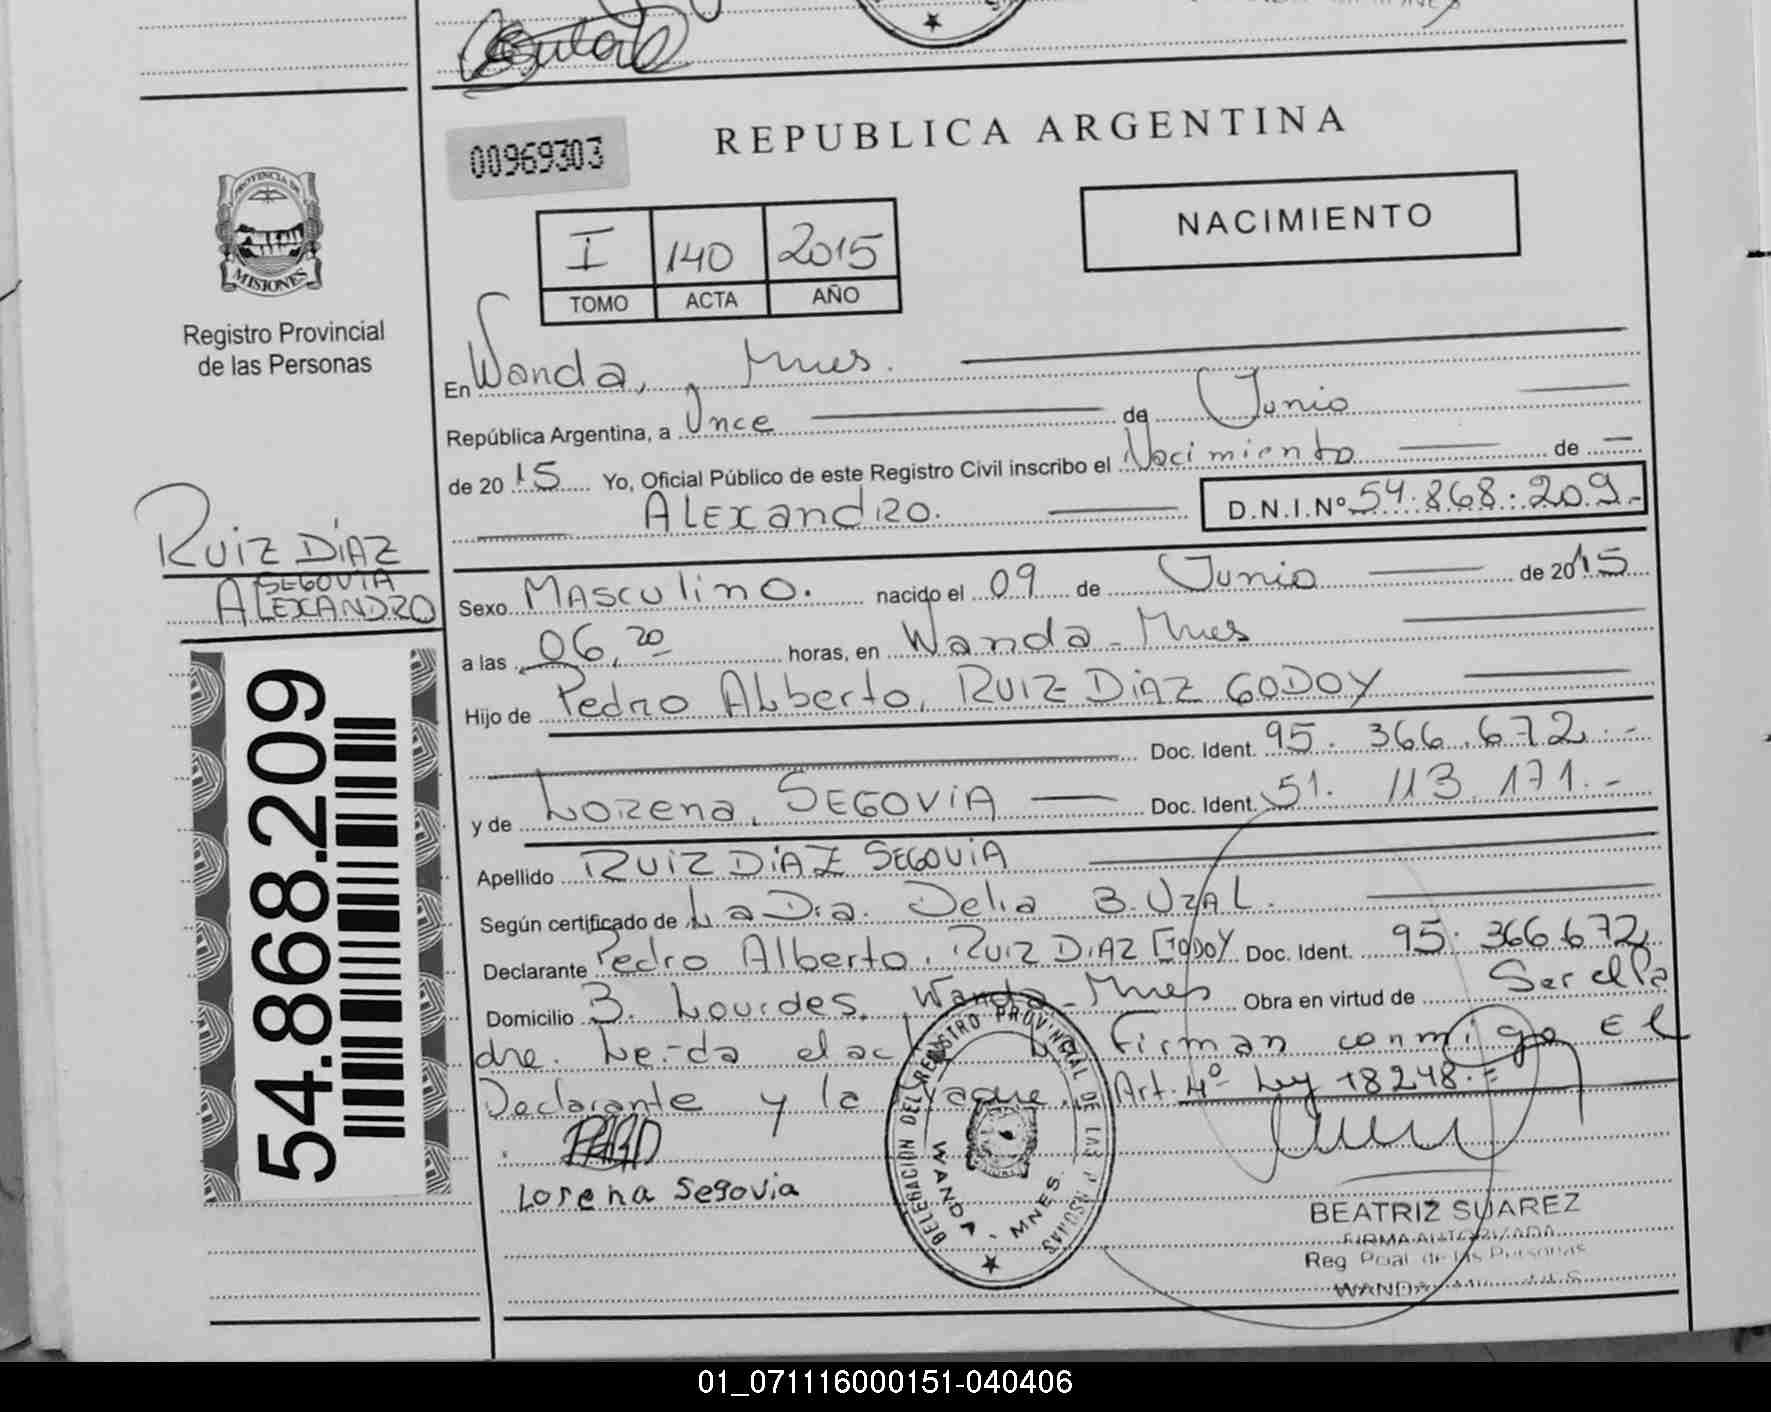 00969303
REPUBLICA ARGENTINA
NACIMIENTO
I 140 2015
TOMO ACTA AÑO
PROVINCIA DE
MISIONES
Registro Provincial
de las Personas
En Wanda, Mnes.
República Argentina, a Once de Junio
de 2015 Yo, Oficial Público de este Registro Civil inscribo el Nacimiento de
Alexandro. D.N.I.Nº 54.868.209.-
RUIZ DÍAZ
SEGOVIA
ALEXANDRO
54.868.209
Sexo Masculino. nacido el 09 de Junio de 2015
a las 06,20 horas, en Wanda - Mnes
Hijo de Pedro Alberto, RUIZ DIAZ GODOY
Doc. Ident. 95.366.672.-
y de Lorena, SEGOVIA Doc. Ident. 51.113.171.-
Apellido RUIZ DIAZ SEGOVIA
Según certificado de La Dra. Delia B. UZAL.
Declarante Pedro Alberto, RUIZ DIAZ GODOY Doc. Ident. 95.366.672
Domicilio B. Lourdes. Wanda - Mnes Obra en virtud de Ser el Pa
dre. Leida el acta Firman conmigo El
Declarante y la Madre. Art. 4º Ley 18248.=
Lorena Segovia
DELEGACION DEL REGISTRO PROVINCIAL DE LAS PERSONAS
WANDA - MNES.
BEATRIZ SUAREZ
FIRMA AUTORIZADA
Reg Pcial de las Personas
WANDA
01_071116000151-040406